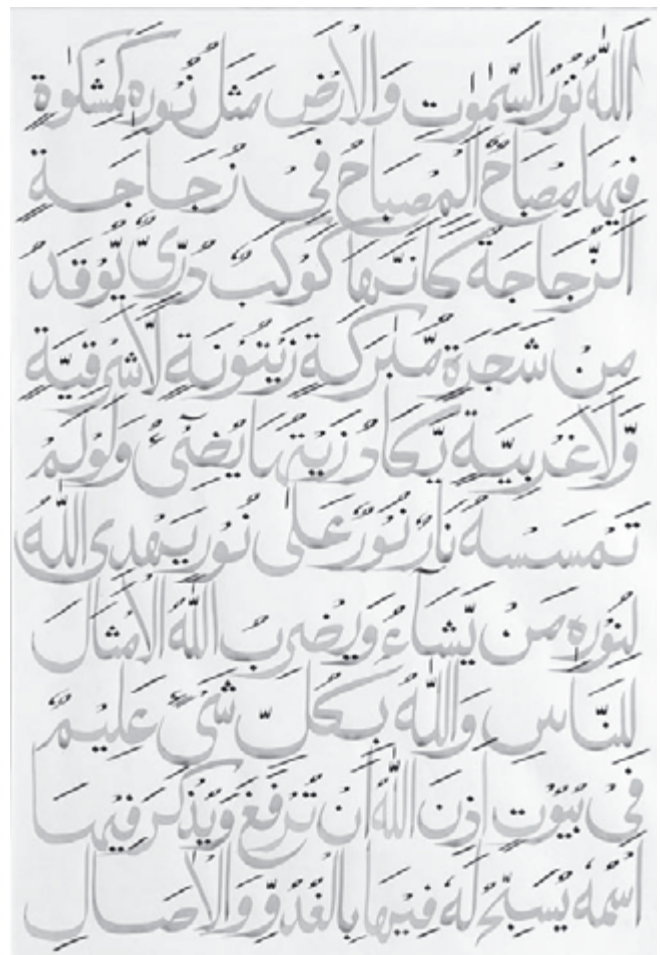 اَللّٰهُ نُوْرُ السَّمٰوٰتِ وَالْاَرْضِ مَثَلُ نُوْرِهٖ كَمِشْكٰوةٍ
فِيْهَا مِصْبَاحٌ اَلْمِصْبَاحُ فِيْ زُجَاجَةٍ
اَلزُّجَاجَةُ كَاَنَّهَا كَوْكَبٌ دُرِّيٌّ يُّوْقَدُ
مِنْ شَجَرَةٍ مُّبٰرَكَةٍ زَيْتُوْنَةٍ لَّا شَرْقِيَّةٍ
وَّلَا غَرْبِيَّةٍ يَّكَادُ زَيْتُهَا يُضِيْٓءُ وَلَوْ لَمْ
تَمْسَسْهُ نَارٌ نُوْرٌ عَلٰى نُوْرٍ يَهْدِى اللّٰهُ
لِنُوْرِهٖ مَنْ يَّشَاءُ وَيَضْرِبُ اللّٰهُ الْاَمْثَالَ
لِلنَّاسِ وَاللّٰهُ بِكُلِّ شَيْءٍ عَلِيْمٌ
فِيْ بُيُوْتٍ اَذِنَ اللّٰهُ اَنْ تُرْفَعَ وَيُذْكَرَ فِيْهَا
اسْمُهٗ يُسَبِّحُ لَهٗ فِيْهَا بِالْغُدُوِّ وَالْاٰصَالِ